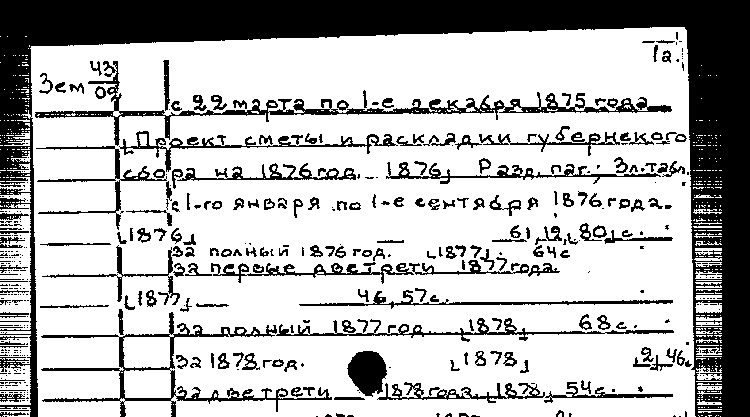 1а.
Зем 43/09
с 22 марта по 1-е декабря 1875 года
[Проект сметы и раскладки губернского
сбора на 1876 год. 1876] Разд. паг.; 3л.табл.
с 1-го января по 1-е сентября 1876 года.
[1876] 61,12,[80]с.
за полный 1876 год. [1877]. 64с
за первые две трети 1877 года.
[1877] 46,57с.
за полный 1877 год [1878] 68с.
за 1878 год. [1878] [2],46
за две трети 1878 года. [1878] 54с.